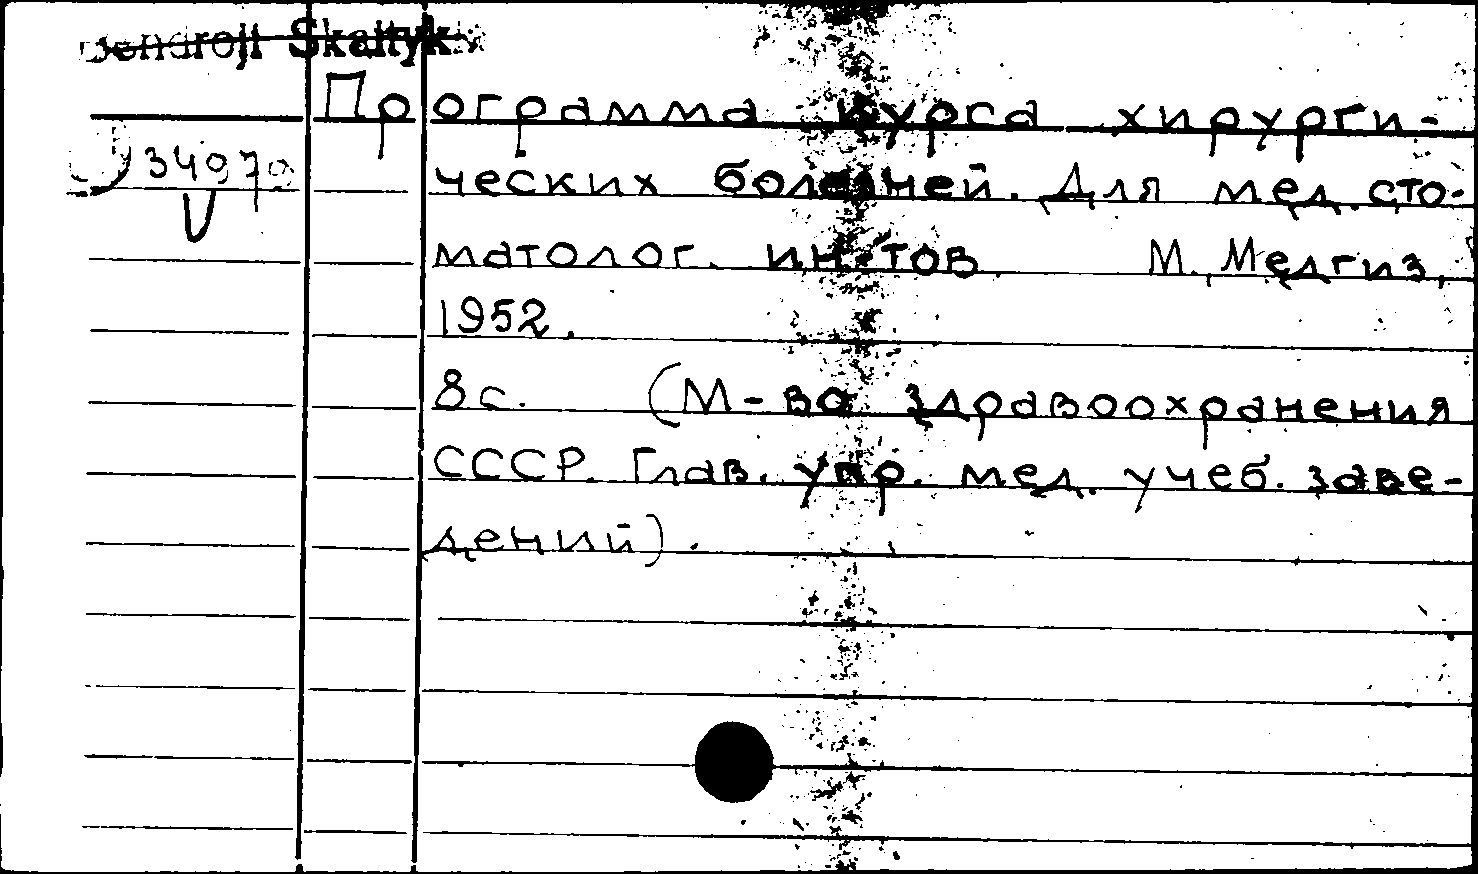 Bendroji Skaityk
Программа курса хирурги-
34979
ческих болезней. Для мед. сто-
матолог. ин-тов. М., Медгиз,
1952.
8 с. (М-во здравоохранения
СССР. Глав. упр. мед. учеб. заве-
дений).